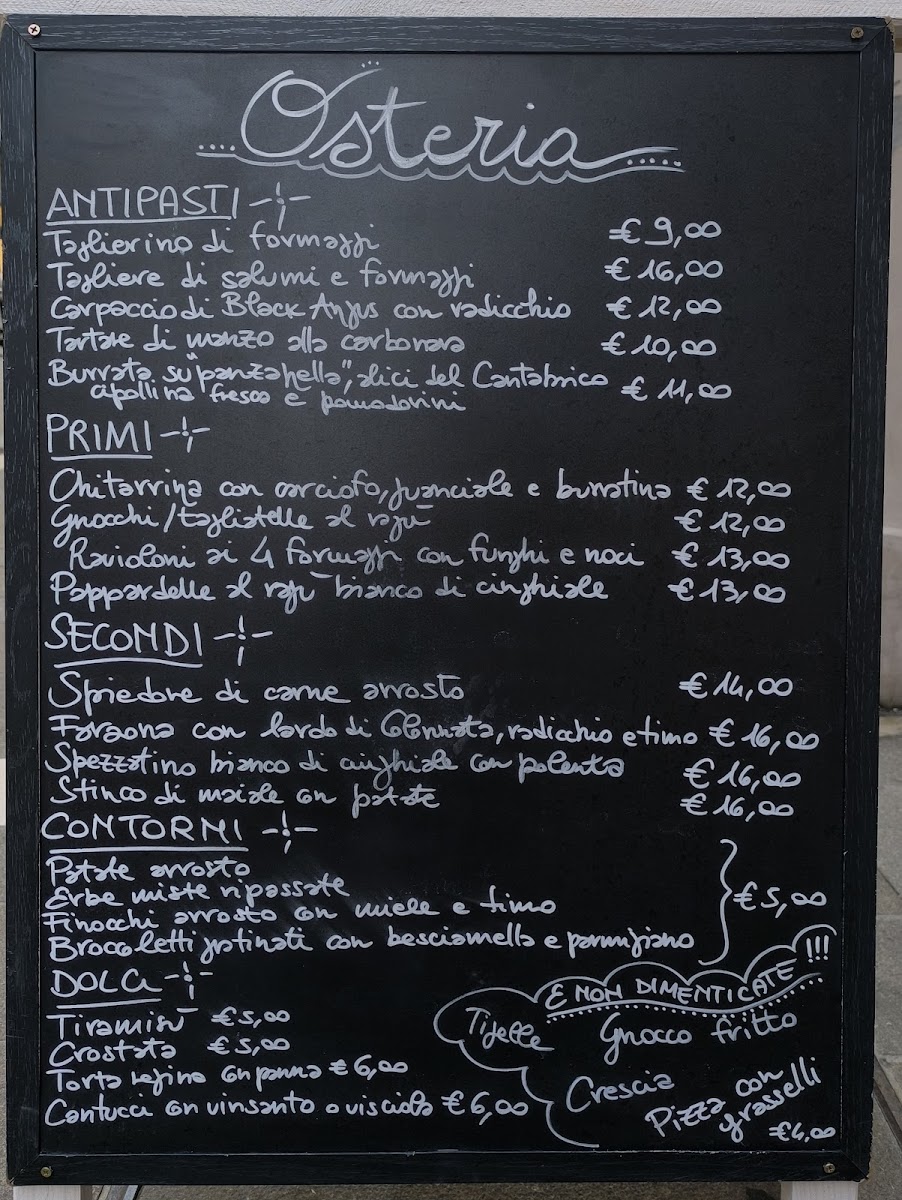 Osteria
ANTIPASTI
Taglierino di formaggi € 9,00
Tagliere di salumi e formaggi € 16,00
Carpaccio di Black Angus con radicchio € 12,00
Tartare di manzo alla carbonara € 10,00
Burrata su "panzanella", alici del Cantabrico € 11,00
cipollina fresca e pomodorini
PRIMI
Chitarrina con carciofo, guanciale e burratina € 12,00
Gnocchi/tagliatelle al ragù € 12,00
Ravioloni ai 4 formaggi con funghi e noci € 13,00
Pappardelle al ragù bianco di cinghiale € 13,00
SECONDI
Spiedone di carne arrosto € 14,00
Faraona con lardo di Colonnata, radicchio e timo € 16,00
Spezzatino bianco di cinghiale con polenta € 16,00
Stinco di maiale con patate € 16,00
CONTORNI
Patate arrosto
Erbe miste ripassate
Finocchi arrosto con miele e timo
Broccoletti gratinati con besciamella e parmigiano
€ 5,00
DOLCI
Tiramisù € 5,00
Crostata € 5,00
Torta regina con panna € 6,00
Cantucci con vinsanto o visciola € 6,00
E NON DIMENTICATE !!!
Tigelle Gnocco fritto
Crescia Pizza con
grasselli
€ 4,00